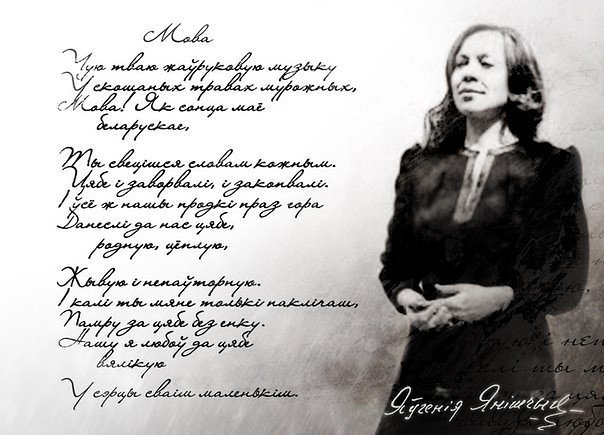 Мова
Чую тваю жаўруковую музыку
У скошаных травах мурожных,
Мова! Як сонца маё
беларускае,
Ты свецішся словам кожным.
Цябе і заворвалі, і закопвалі.
І ўсё ж нашы продкі праз гора
Данеслі да нас цябе,
родную, цёплую,
Жывую і непаўторную.
І калі ты мяне толькі паклічаш,
Памру за цябе без енку.
Нашу я любоў да цябе
вялікую
У сэрцы сваім маленькім.
Яўгенія Янішчыц